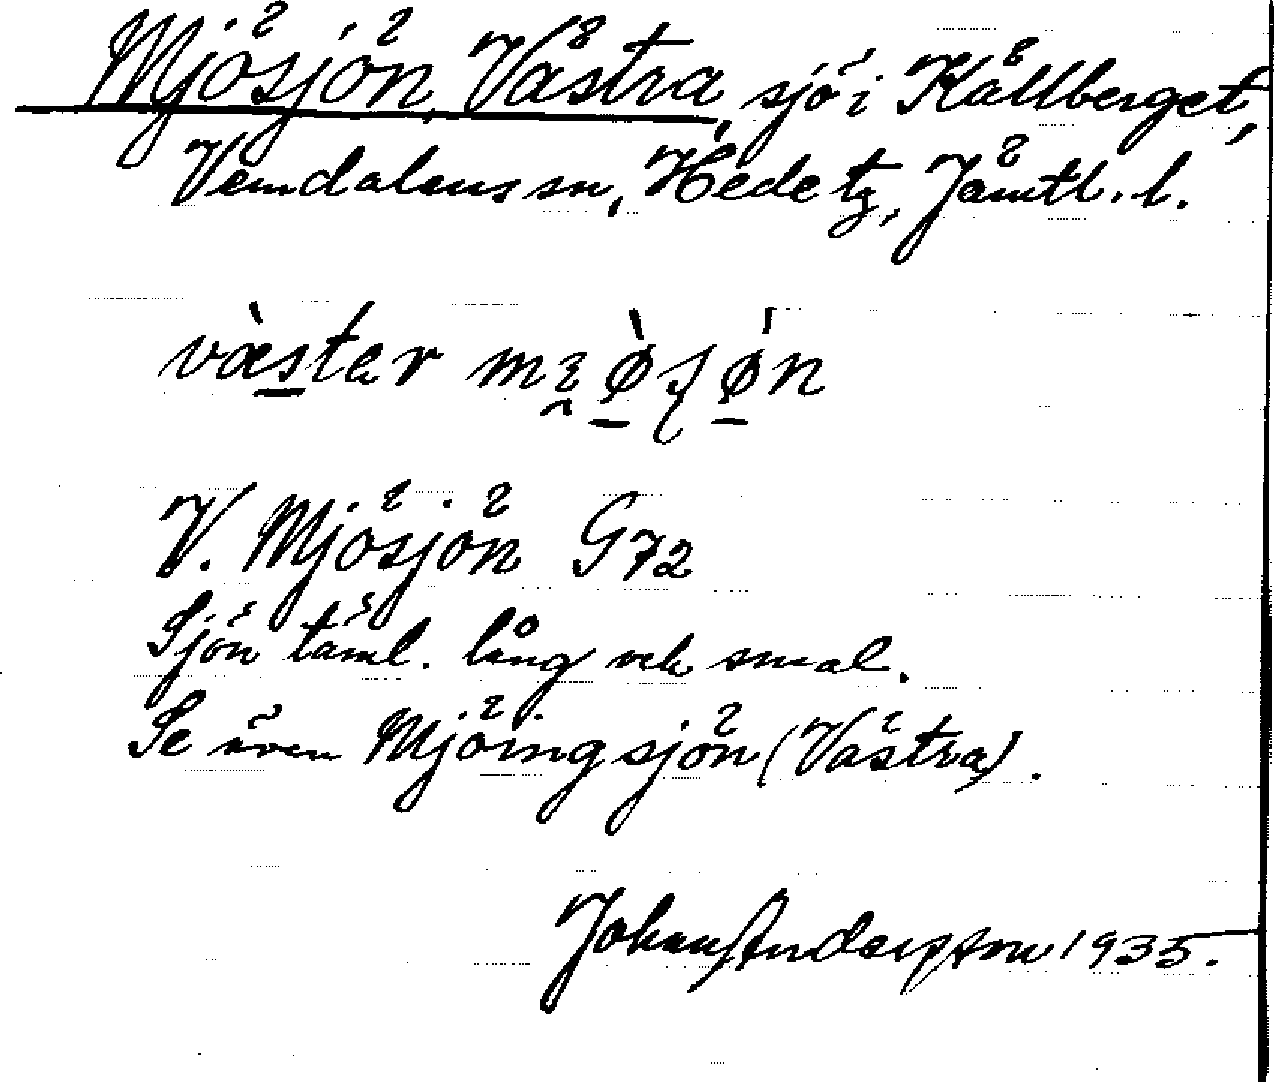 Mjösjön, Västra, sjö i Källberget,
Vemdalens sn, Hede tg, Jämtl. l.
væ̀ster mɪ̯ø̀ʃø̍n
V. Mjösjön G72
Sjön täml. lång och smal.
Se även Mjöingsjön (Västra).
Johan Andersson 1935.